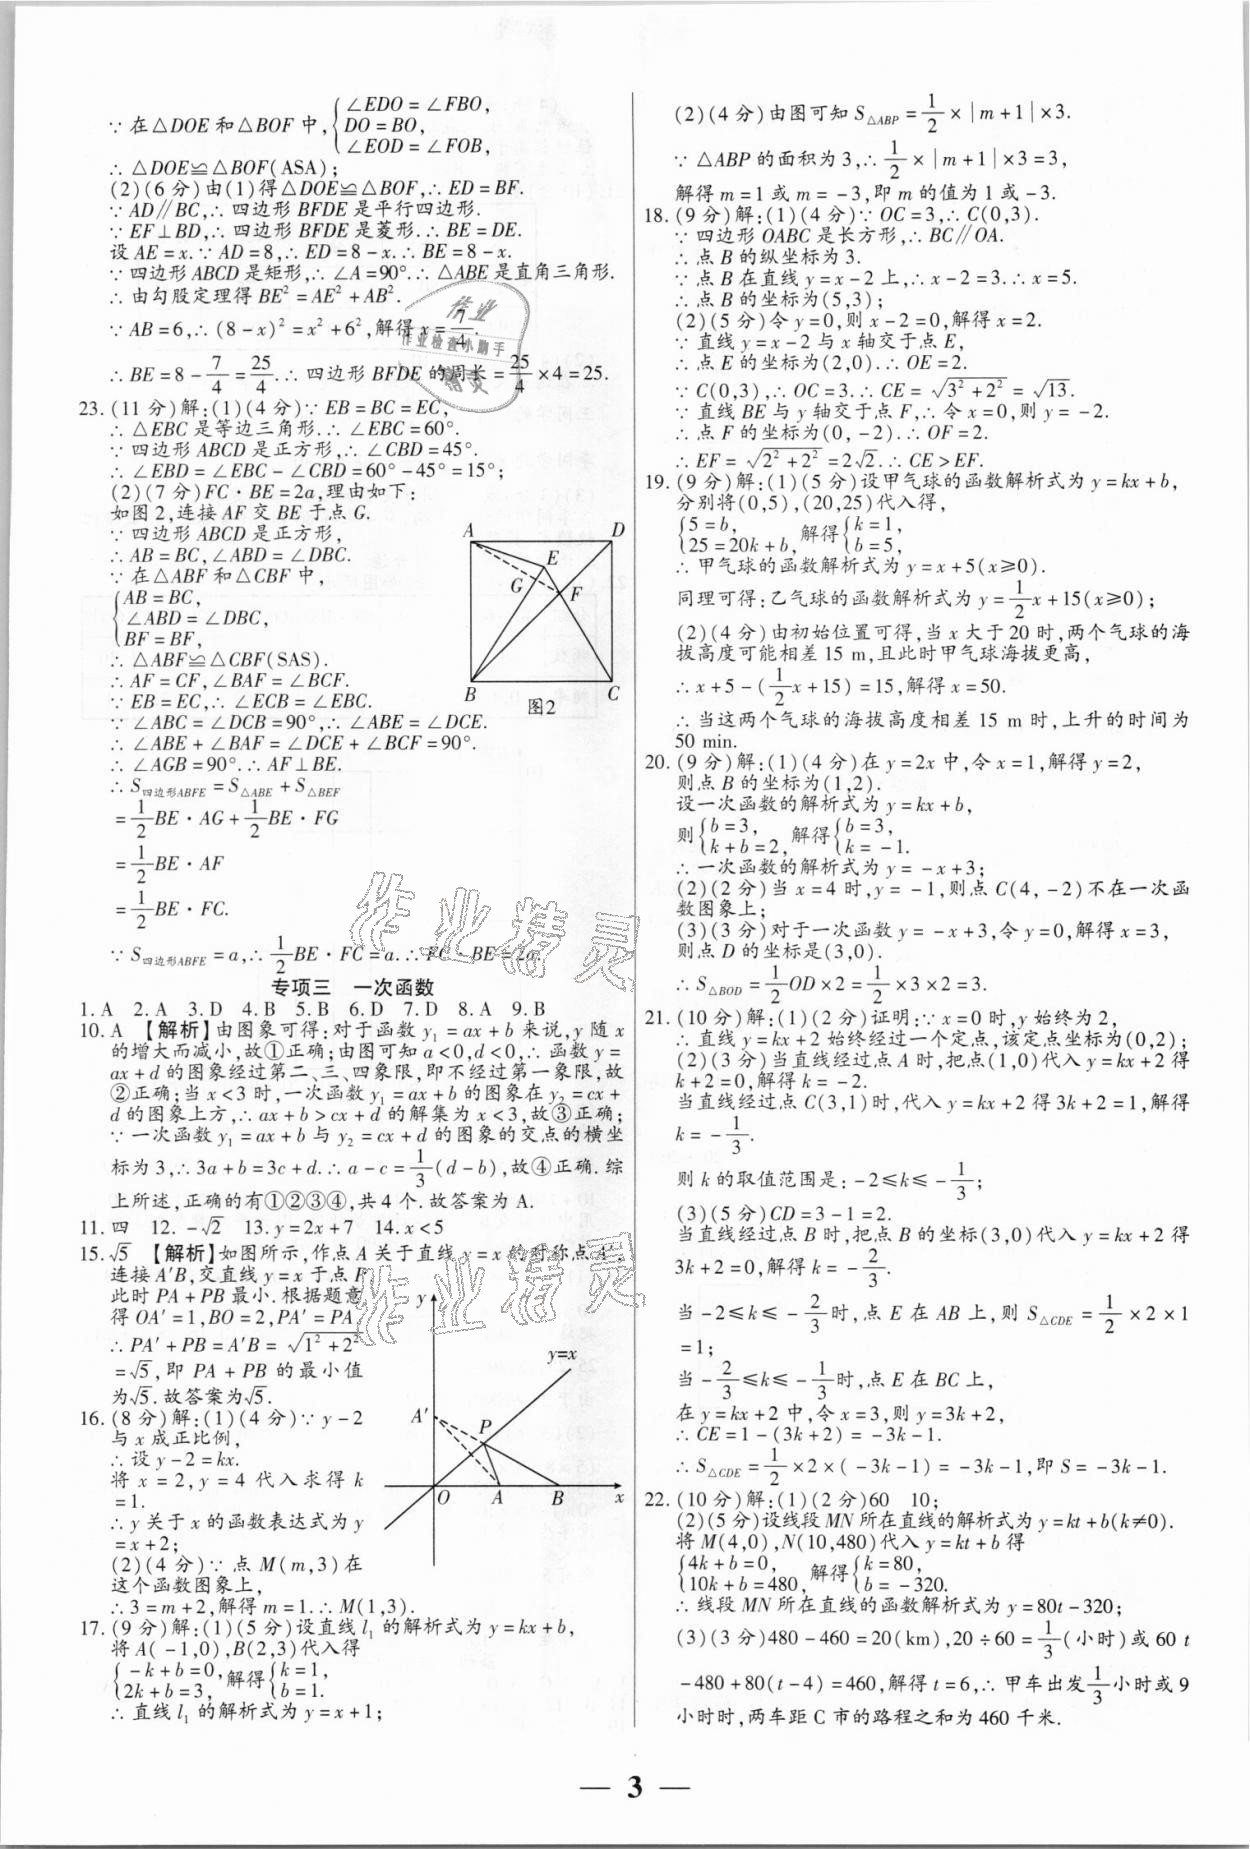 ∵ 在△DOE 和△BOF 中, { ∠EDO = ∠FBO,
DO = BO,
∠EOD = ∠FOB,
∴ △DOE≌△BOF(ASA);
(2)(6 分)由(1)得△DOE≌△BOF,∴ ED = BF.
∵ AD∥BC,∴ 四边形 BFDE 是平行四边形.
∵ EF⊥BD,∴ 四边形 BFDE 是菱形.∴ BE = DE.
设 AE = x.∵ AD = 8,∴ ED = 8 - x.∴ BE = 8 - x.
∵ 四边形 ABCD 是矩形,∴ ∠A = 90°.∴ △ABE 是直角三角形.
∴ 由勾股定理得 BE² = AE² + AB².
∵ AB = 6,∴ (8 - x)² = x² + 6²,解得 x = 7/4.
∴ BE = 8 - 7/4 = 25/4.∴ 四边形 BFDE 的周长 = 25/4 × 4 = 25.
23. (11 分)解:(1)(4 分)∵ EB = BC = EC,
∴ △EBC 是等边三角形.∴ ∠EBC = 60°.
∵ 四边形 ABCD 是正方形,∴ ∠CBD = 45°.
∴ ∠EBD = ∠EBC - ∠CBD = 60° - 45° = 15°;
(2)(7 分)FC · BE = 2a,理由如下:
如图 2,连接 AF 交 BE 于点 G.
∵ 四边形 ABCD 是正方形,
∴ AB = BC,∠ABD = ∠DBC.
∵ 在△ABF 和△CBF 中,
{ AB = BC,
∠ABD = ∠DBC,
BF = BF,
∴ △ABF≌△CBF(SAS).
∴ AF = CF,∠BAF = ∠BCF.
∵ EB = EC,∴ ∠ECB = ∠EBC.
∵ ∠ABC = ∠DCB = 90°,∴ ∠ABE = ∠DCE.
∴ ∠ABE + ∠BAF = ∠DCE + ∠BCF = 90°.
∴ ∠AGB = 90°.∴ AF⊥BE.
∴ S四边形ABFE = S△ABE + S△BEF
= 1/2 BE · AG + 1/2 BE · FG
= 1/2 BE · AF
= 1/2 BE · FC.
∵ S四边形ABFE = a,∴ 1/2 BE · FC = a.∴ FC · BE = 2a.
A D E G F B C
图2
专项三 一次函数
1. A 2. A 3. D 4. B 5. B 6. D 7. D 8. A 9. B
10. A 【解析】由图象可得:对于函数 y₁ = ax + b 来说,y 随 x
的增大而减小,故①正确;由图可知 a < 0,d < 0,∴ 函数 y =
ax + d 的图象经过第二、三、四象限,即不经过第一象限,故
②正确;当 x < 3 时,一次函数 y₁ = ax + b 的图象在 y₂ = cx +
d 的图象上方,∴ ax + b > cx + d 的解集为 x < 3,故③正确;
∵ 一次函数 y₁ = ax + b 与 y₂ = cx + d 的图象的交点的横坐
标为 3,∴ 3a + b = 3c + d.∴ a - c = 1/3 (d - b),故④正确. 综
上所述,正确的有①②③④,共 4 个. 故答案为 A.
11. 四 12. -√2 13. y = 2x + 7 14. x < 5
15. √5 【解析】如图所示,作点 A 关于直线 y = x 的对称点 A′,
连接 A′B,交直线 y = x 于点 P
此时 PA + PB 最小. 根据题意
得 OA′ = 1,BO = 2,PA′ = PA
∴ PA′ + PB = A′B = √(1² + 2²)
= √5,即 PA + PB 的最小值
为√5. 故答案为√5.
y y=x A′ P O A B x
16. (8 分)解:(1)(4 分)∵ y - 2
与 x 成正比例,
∴ 设 y - 2 = kx.
将 x = 2,y = 4 代入求得 k
= 1.
∴ y 关于 x 的函数表达式为 y
= x + 2;
(2)(4 分)∵ 点 M(m,3)在
这个函数图象上,
∴ 3 = m + 2,解得 m = 1.∴ M(1,3).
17. (9 分)解:(1)(5 分)设直线 l₁ 的解析式为 y = kx + b,
将 A( - 1,0),B(2,3)代入得
{ -k + b = 0, 2k + b = 3, 解得 { k = 1, b = 1.
∴ 直线 l₁ 的解析式为 y = x + 1;
(2)(4 分)由图可知 S△ABP = 1/2 × |m + 1| × 3.
∵ △ABP 的面积为 3,∴ 1/2 × |m + 1| × 3 = 3,
解得 m = 1 或 m = - 3,即 m 的值为 1 或 - 3.
18. (9 分)解:(1)(4 分)∵ OC = 3,∴ C(0,3).
∵ 四边形 OABC 是长方形,∴ BC∥OA.
∴ 点 B 的纵坐标为 3.
∵ 点 B 在直线 y = x - 2 上,∴ x - 2 = 3.∴ x = 5.
∴ 点 B 的坐标为(5,3);
(2)(5 分)令 y = 0,则 x - 2 = 0,解得 x = 2.
∵ 直线 y = x - 2 与 x 轴交于点 E,
∴ 点 E 的坐标为(2,0).∴ OE = 2.
∵ C(0,3),∴ OC = 3.∴ CE = √(3² + 2²) = √13.
∵ 直线 BE 与 y 轴交于点 F,∴ 令 x = 0,则 y = - 2.
∴ 点 F 的坐标为(0, - 2).∴ OF = 2.
∴ EF = √(2² + 2²) = 2√2.∴ CE > EF.
19. (9 分)解:(1)(5 分)设甲气球的函数解析式为 y = kx + b,
分别将(0,5),(20,25)代入得,
{ 5 = b, 25 = 20k + b, 解得 { k = 1, b = 5,
∴ 甲气球的函数解析式为 y = x + 5(x≥0).
同理可得:乙气球的函数解析式为 y = 1/2 x + 15(x≥0);
(2)(4 分)由初始位置可得,当 x 大于 20 时,两个气球的海
拔高度可能相差 15 m,且此时甲气球海拔更高,
∴ x + 5 - (1/2 x + 15) = 15,解得 x = 50.
∴ 当这两个气球的海拔高度相差 15 m 时,上升的时间为
50 min.
20. (9 分)解:(1)(4 分)在 y = 2x 中,令 x = 1,解得 y = 2,
则点 B 的坐标为(1,2).
设一次函数的解析式为 y = kx + b,
则 { b = 3, k + b = 2, 解得 { b = 3, k = - 1.
∴ 一次函数的解析式为 y = - x + 3;
(2)(2 分)当 x = 4 时,y = - 1,则点 C(4, - 2)不在一次函
数图象上;
(3)(3 分)对于一次函数 y = - x + 3,令 y = 0,解得 x = 3,
则点 D 的坐标是(3,0).
∴ S△BOD = 1/2 OD × 2 = 1/2 × 3 × 2 = 3.
21. (10 分)解:(1)(2 分)证明:∵ x = 0 时,y 始终为 2,
∴ 直线 y = kx + 2 始终经过一个定点,该定点坐标为(0,2);
(2)(3 分)当直线经过点 A 时,把点(1,0)代入 y = kx + 2 得
k + 2 = 0,解得 k = - 2.
当直线经过点 C(3,1)时,代入 y = kx + 2 得 3k + 2 = 1,解得
k = - 1/3.
则 k 的取值范围是: - 2≤k≤ - 1/3;
(3)(5 分)CD = 3 - 1 = 2.
当直线经过点 B 时,把点 B 的坐标(3,0)代入 y = kx + 2 得
3k + 2 = 0,解得 k = - 2/3.
当 - 2≤k≤ - 2/3 时,点 E 在 AB 上,则 S△CDE = 1/2 × 2 × 1
= 1;
当 - 2/3 ≤k≤ - 1/3 时,点 E 在 BC 上,
在 y = kx + 2 中,令 x = 3,则 y = 3k + 2,
∴ CE = 1 - (3k + 2) = - 3k - 1.
∴ S△CDE = 1/2 × 2 × ( - 3k - 1) = - 3k - 1,即 S = - 3k - 1.
22. (10 分)解:(1)(2 分)60 10;
(2)(5 分)设线段 MN 所在直线的解析式为 y = kt + b(k≠0).
将 M(4,0),N(10,480)代入 y = kt + b 得
{ 4k + b = 0, 10k + b = 480, 解得 { k = 80, b = - 320.
∴ 线段 MN 所在直线的函数解析式为 y = 80t - 320;
(3)(3 分)480 - 460 = 20(km),20 ÷ 60 = 1/3 (小时)或 60 t
- 480 + 80(t - 4) = 460,解得 t = 6,∴ 甲车出发 1/3 小时或 9
小时时,两车距 C 市的路程之和为 460 千米.
— 3 —
作业
作业检查小助手
作业精灵
作业精灵